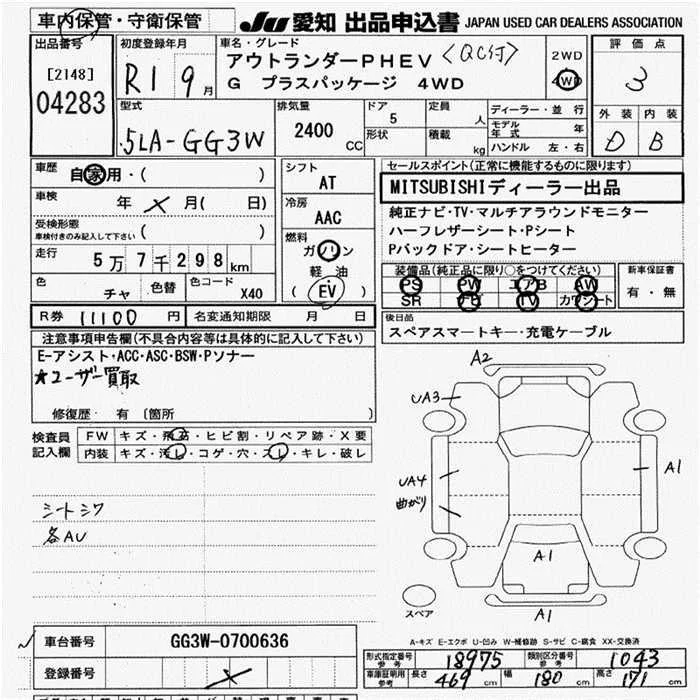 車内保管・守衛保管
JU 愛知 出品申込書 JAPAN USED CAR DEALERS ASSOCIATION
出品番号
[2148]
04283
初度登録年月
R1 9月
車名・グレード
アウトランダーPHEV <QC付>
G プラスパッケージ 4WD
2WD
4WD
評価点
3
外装 内装
D B
型式
5LA-GG3W
排気量
2400 CC
ドア
5
形状
定員
人
積載
kg
ディーラー・並行
モデル年式 年
ハンドル 左・右
車歴
自家用・( )
車検
年 × 月( 日)
受検形態
車検付きのみ記入して下さい ( )
走行
5万7千298km
色
チャ
色替
色コード
X40
シフト
AT
冷房
AAC
燃料
ガソリン
軽油
(EV)
R券 11100 円
名変通知期限 月 日
セールスポイント(正常に機能するものに限ります)
MITSUBISHIディーラー出品
純正ナビ・TV・マルチアラウンドモニター
ハーフレザーシート・Pシート
Pバックドア・シートヒーター
装備品(純正品に限り○をつけてください)
PS PW エアB AW
SR ナビ TV カワシート
新車保証書
有・無
後日品
スペアスマートキー・充電ケーブル
注意事項申告欄(不具合内容等は具体的に記入して下さい)
E-アシスト・ACC・ASC・BSW・Pソナー
★ユーザー買取
修復歴 有 〔箇所 〕
検査員記入欄
FW キズ・飛石・ヒビ割・リペア跡・X要
内装 キズ・汚レ・コゲ・穴・スレ・キレ・破レ
シートシワ
各AU
A2
UA3
UA4
曲がり
A1
A1
A1
スペア
A-キズ E-エクボ U-凹み W-補修跡 S-サビ C-腐食 XX-交換済
車台番号 GG3W-0700636
登録番号 ×
形式指定番号 参考 18975
類別区分番号 参考 1043
車庫証明用 参考 長さ 469 cm 幅 180 cm 高さ 171 cm